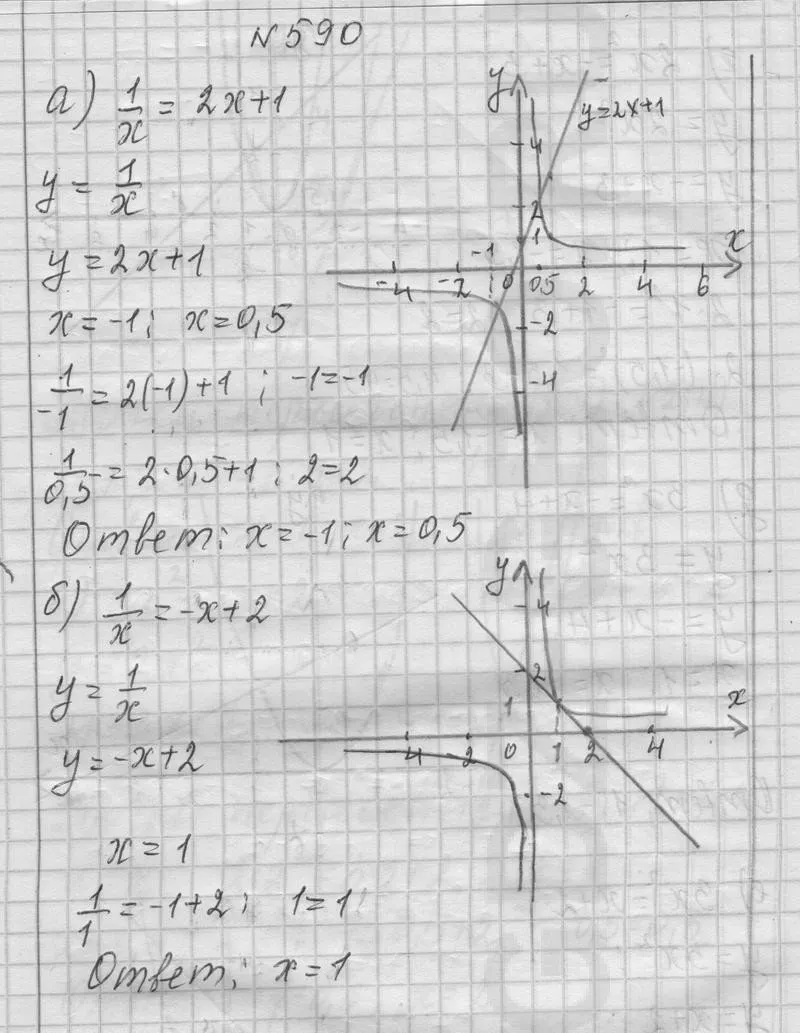 N590
а) 1/x = 2x+1
y = 1/x
y = 2x+1
x = -1; x = 0,5
1/-1 = 2(-1)+1 ; -1=-1
1/0,5 = 2·0,5+1 ; 2=2
Ответ: x = -1; x = 0,5
y
y=2x+1
4
2
1
x
-1
-4 -2 0 0,5 2 4 6
-2
-4
б) 1/x = -x+2
y = 1/x
y = -x+2
x = 1
1/1 = -1+2; 1=1
Ответ: x = 1
y
4
2
1
x
-4 -2 0 1 2 4
-2